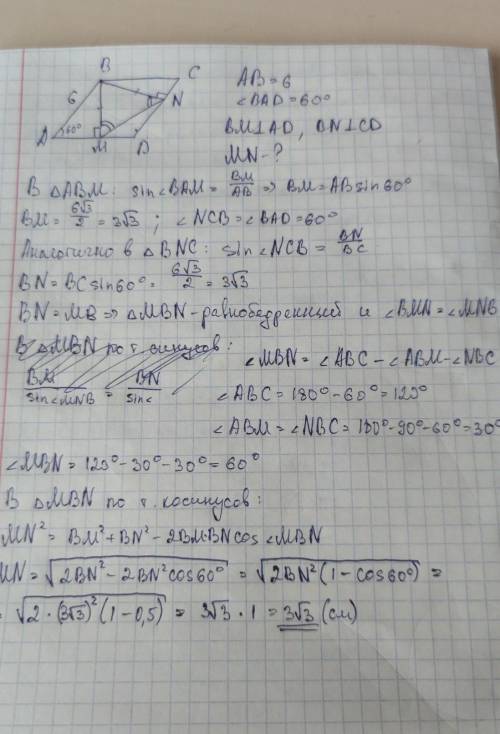 B
C
6
N
A
60°
M
D
AB = 6
∠BAD = 60°
BM⊥AD, BN⊥CD
MN - ?
В △ABM: sin∠BAM = BM/AB ⇒ BM = AB sin60°
BM = 6√3/2 = 3√3 ; ∠NCB = ∠BAD = 60°
Аналогично в △BNC: sin∠NCB = BN/BC
BN = BC sin60° = 6√3/2 = 3√3
BN = MB ⇒ △MBN - равнобедренный и ∠BMN = ∠MNB
В △MBN по т. синусов:
BM/sin∠MNB = BN/sin∠
∠MBN = ∠ABC - ∠ABM - ∠NBC
∠ABC = 180° - 60° = 120°
∠ABM = ∠NBC = 180° - 90° - 60° = 30°
∠MBN = 120° - 30° - 30° = 60°
В △MBN по т. косинусов:
MN² = BM² + BN² - 2BM·BN cos∠MBN
MN = √(2BN² - 2BN² cos60°) = √(2BN² (1 - cos60°)) =
= √(2·(3√3)² (1 - 0,5)) = 3√3 · 1 = 3√3 (см)